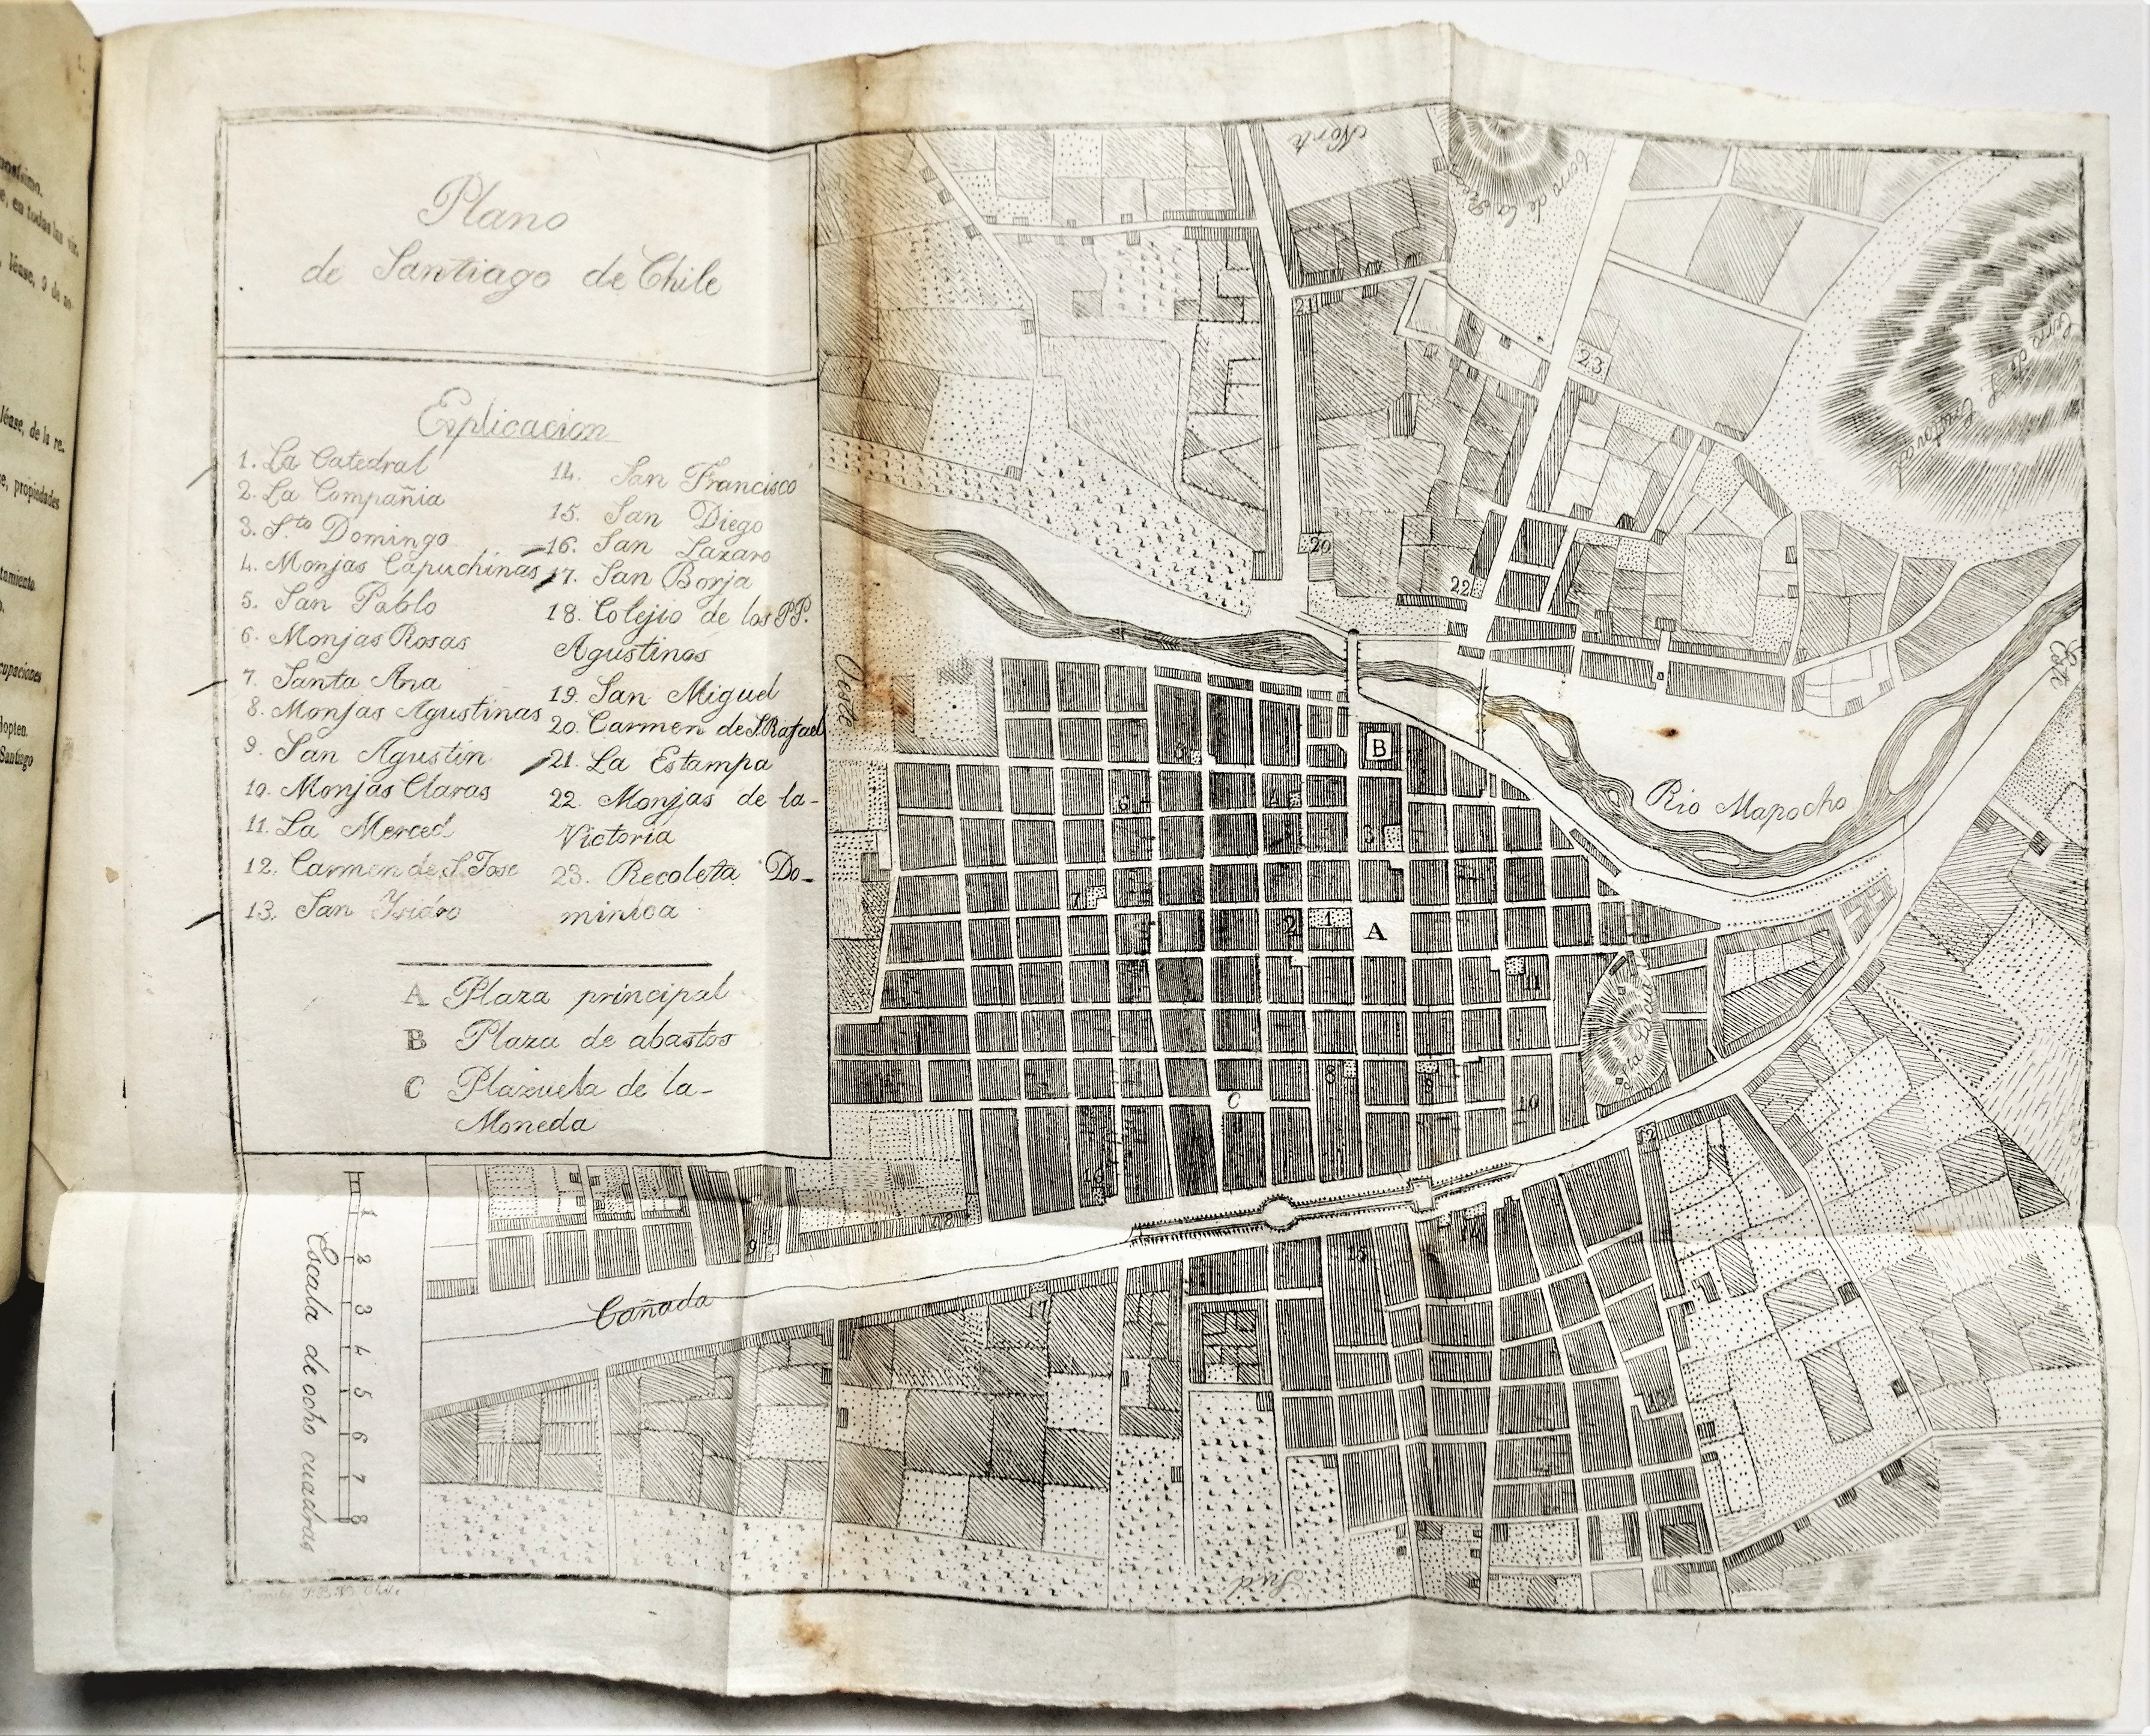 Plano
de Santiago de Chile
Esplicacion
1. La Catedral
2. La Compañia
3. Sto Domingo
4. Monjas Capuchinas
5. San Pablo
6. Monjas Rosas
7. Santa Ana
8. Monjas Agustinas
9. San Agustin
10. Monjas Claras
11. La Merced
12. Carmen de S. Jose
13. San Ysidro
14. San Francisco
15. San Diego
16. San Lazaro
17. San Borja
18. Colejio de los PP.
Agustinos
19. San Miguel
20. Carmen de S. Rafael
21. La Estampa
22. Monjas de la-
Victoria
23. Recoleta Do-
minica
A Plaza principal
B Plaza de abastos
C Plazuela de la-
Moneda
Escala de ocho cuadras
1 2 3 4 5 6 7 8
Norte
Oeste
Este
Sud
Rio Mapocho
Cañada
21
23
20
22
B
6
3
7
2 1
A
11
C
8
10
12
16
18
19
14
15
17
13
en todas las
léase, 9 de
léase, de la re-
propiedades